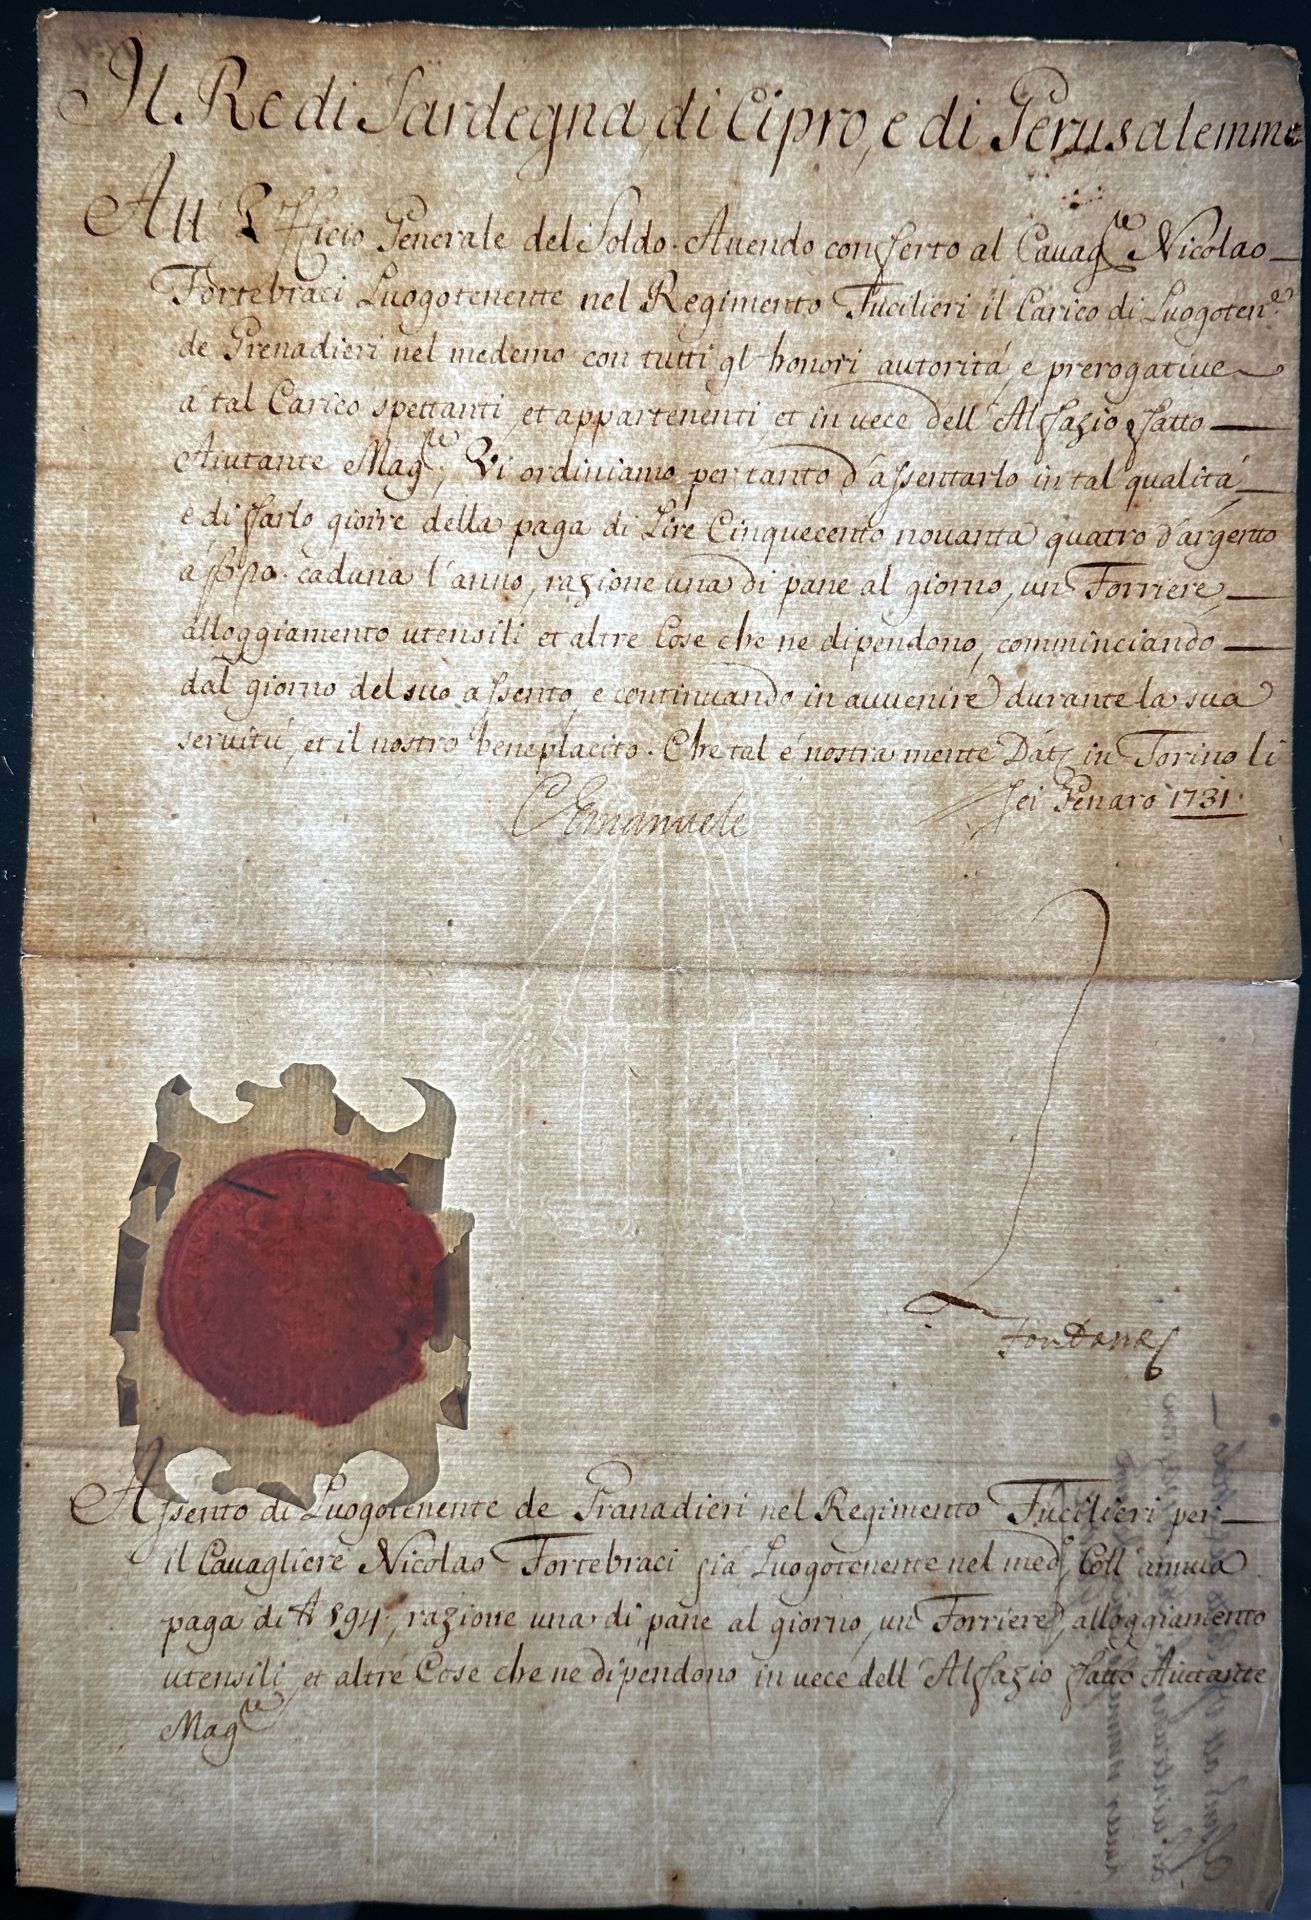 Il Re di Sardegna, di Cipro, e di Gerusalemme
All' Ufficio Generale del Soldo. Avendo conferto al Cavag.re Nicolao
Fortebraci Luogotenente nel Regimento Fucilieri il Carico di Luogoten.e
de Grenadieri nel medemo con tutti gl' honori autorità, e prerogative
à tal Carico spettanti, et appartenenti, et in vece dell' Alfazio fatto
Aiutante Mag.re, Vi ordiniamo per tanto d'assentarlo in tal qualità
e di farlo gioire della paga di Lire Cinquecento novanta quatro d'argento
caduna l'anno, razione una di pane al giorno, un Forriere,
alloggiamento utensili et altre Cose che ne dipendono, comminciando
dal giorno del suo assento, e continuando in avvenire durante la sua
servitù, et il nostro beneplacito. Che tal è nostra mente Dat in Torino li
sei Genaro 1731.
C Emanuele
Fontana
Assento di Luogotenente de Granadieri nel Regimento Fucilieri per
il Cavagliere Nicolao Fortebraci già Luogotenente nel med. Coll' annua
paga di 594, razione una di pane al giorno, un Forriere, alloggiamento
utensili, et altre Cose che ne dipendono in vece dell' Alfazio fatto Aiutante
Mag.re